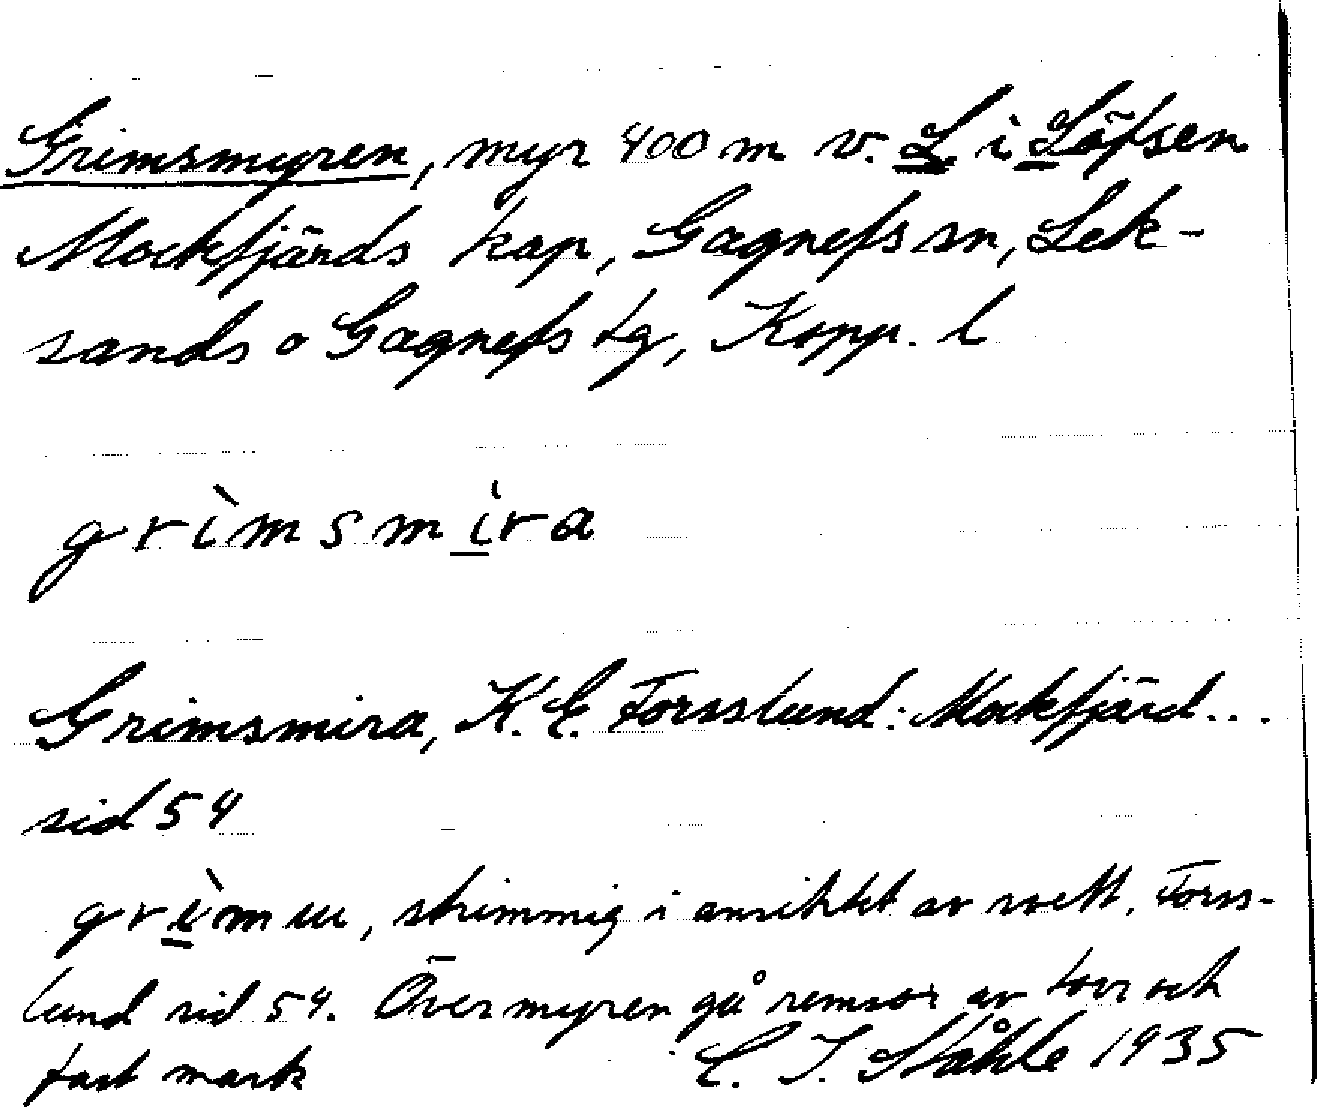 Grimsmyren, myr 400 m v. L. i Löfsen
Mockfjärds kap, Gagnefs sn, Lek-
sands o Gagnefs tg, Kopp. l
grìmsmira
Grimsmira, K. E. Forsslund: Mockfjärd...
sid 54
grìmm, strimmig i ansiktet av svett. Forss-
lund sid 54. Över myren gå remsor av torr och
fast mark
C. I. Ståhle 1935